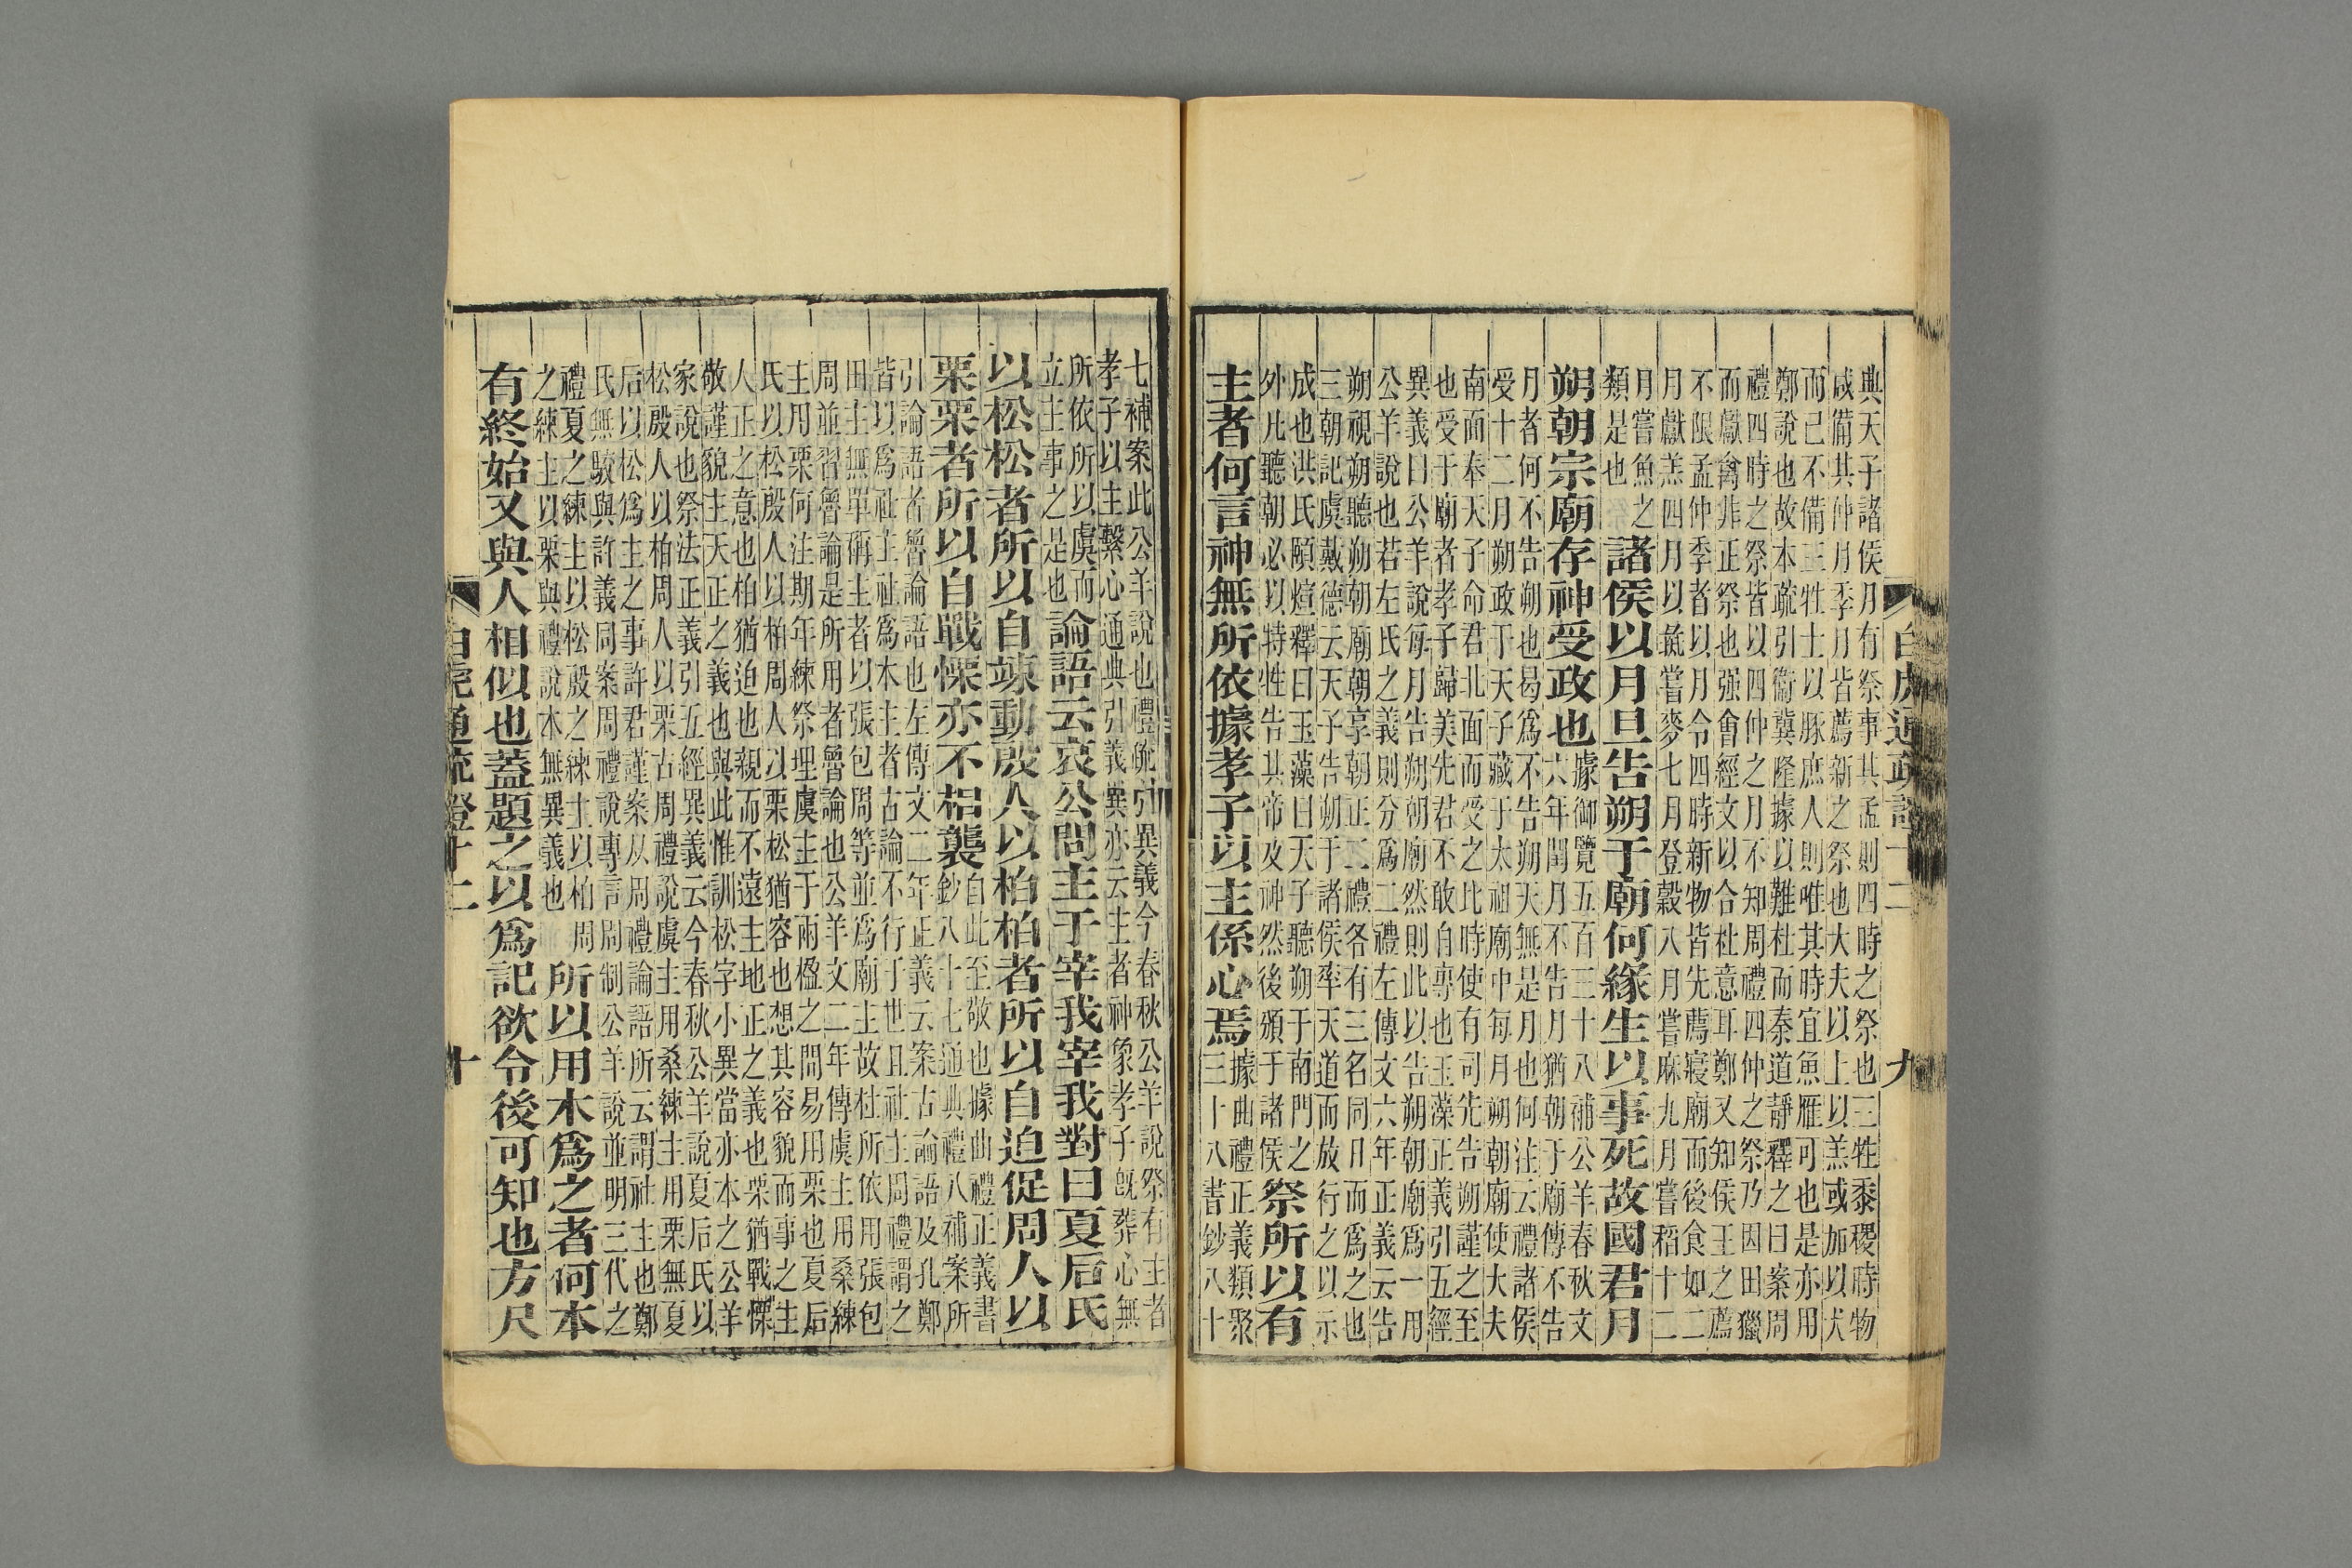 典天子諸侯月有祭事其孟則四時之祭也三牲黍稷時物
咸備其仲月季月皆薦新之祭也大夫以上以羔或加以犬
而已不備三牲士以豚庶人則唯其時宜魚雁可也是亦用
鄭說也故本疏引衞冀隆據以難杜而秦道靜釋之曰案周
禮四時之祭皆以四仲之月不知周禮四仲之祭乃因田獵
而獻禽非正祭也强會經文以合杜意耳鄭又知侯王之薦
不限孟仲季者以月令四時新物皆先薦寢廟而後食如二
月獻羔四月以彘嘗麥七月登穀八月嘗麻九月嘗稻十二
月嘗魚之
類是也
諸侯以月旦告朔于廟何緣生以事死故國君月
朔朝宗廟存神受政也
據御覽五百三十八補公羊春秋文
六年閏月不告月猶朝于廟傳不告
月者何不告朔也曷爲不告朔天無是月也何注云禮諸侯
受十二月朔政于天子藏于太祖廟中每月朔朝廟使大夫
南面奉天子命君北面而受之比時使有司先告朔謹之至
也受于廟者孝子歸美先君不敢自專也玉藻正義引五經
異義曰公羊說每月告朔朝廟然則此以告朔朝廟爲一用
公羊說也若左氏之義則分爲二禮左傳文六年正義云告
朔視朔聽朔朝廟朝享朝正二禮各有三名同日而爲之也
三朝記虞戴德云天子告朔于諸侯率天道而放行之以示
成也洪氏頤煊釋曰玉藻曰天子聽朔于南門之
外凡聽朝必以特牲告其帝及神然後頒于諸侯
祭所以有
主者何言神無所依據孝子以主係心焉
據曲禮正義類聚
三十八書鈔八十
白虎通疏證十二
九
七補案此公羊說也禮疏引異義今春秋公羊說祭有主者
孝子以主繫心通典引義異亦云主者神象孝子旣葬心無
所依所以虞而
立主事之是也
論語云哀公問主于宰我宰我對曰夏后氏
以松松者所以自竦動殷人以柏柏者所以自迫促周人以
栗栗者所以自戰慄亦不相襲
自此至敬也據曲禮正義書
鈔八十七通典禮八補案所
引論語者魯論語也左傳文二年正義云案古論語及孔鄭
皆以爲社主社爲木主者古論不行于世且社主周禮謂之
田主無單稱主者以張包周等並爲廟主故杜所依用張包
周並習魯論是所用者魯論也公羊文二年傳虞主用桑練
主用栗何注期年練祭埋虞主于兩楹之間易用栗也夏后
氏以松殷人以柏周人以栗松猶容也想其容貌而事之生
人正之意也柏猶迫也親而不遠主地正之義也栗猶戰慄
敬謹貌主天正之義也與此惟訓松字小異當亦本之公羊
家說也祭法正義引五經異義云今春秋公羊說夏后氏以
松殷人以柏周人以栗古周禮說虞主用桑練主用栗無夏
后以松爲主之事許君謹案从周禮論語所云謂社主也鄭
氏無駮與許義同案周禮說專言周制公羊說並明三代之
禮夏之練主以松殷之練主以柏周
之練主以栗與禮說本無異義也
所以用木爲之者何本
有終始又與人相似也蓋題之以爲記欲令後可知也方尺
白虎通疏證十二
十